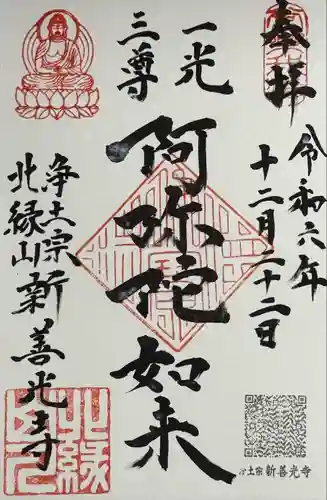 奉拝
令和六年
十二月二十二日
一光
三尊
阿弥陀如来
浄土宗
北縁山新善光寺
北縁
浄土宗 新善光寺